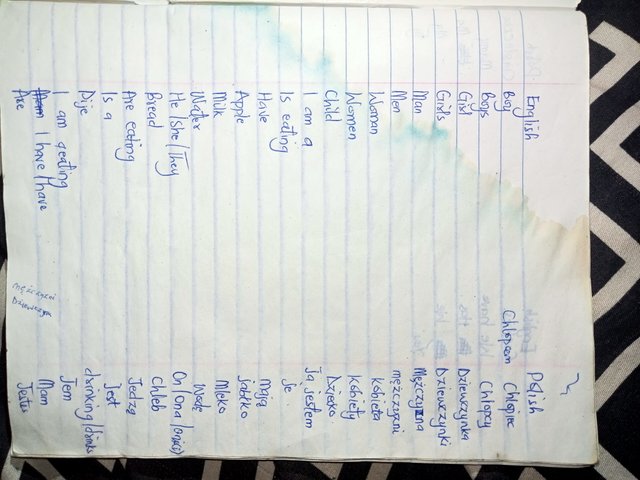 English Polish
Boy Chłopiec Chłopcem
Boys Chłopcy
Girl Dziewczynka
Girls Dziewczynki
Man Mężczyzna
Men mężczyzni
Woman kobieta
Women kobiety
Child Dziecko
I am a Ja jestem
Is eating je
Have maja
Apple Jabłko
Milk Mleko
Water Wodę
He /she/They On/ona/
Bread Chleb
Are eating Jedzą
Is a Jest
Pije drinking/drinks
I am eating Jem
I have/have Mam
Are
mężczyzni